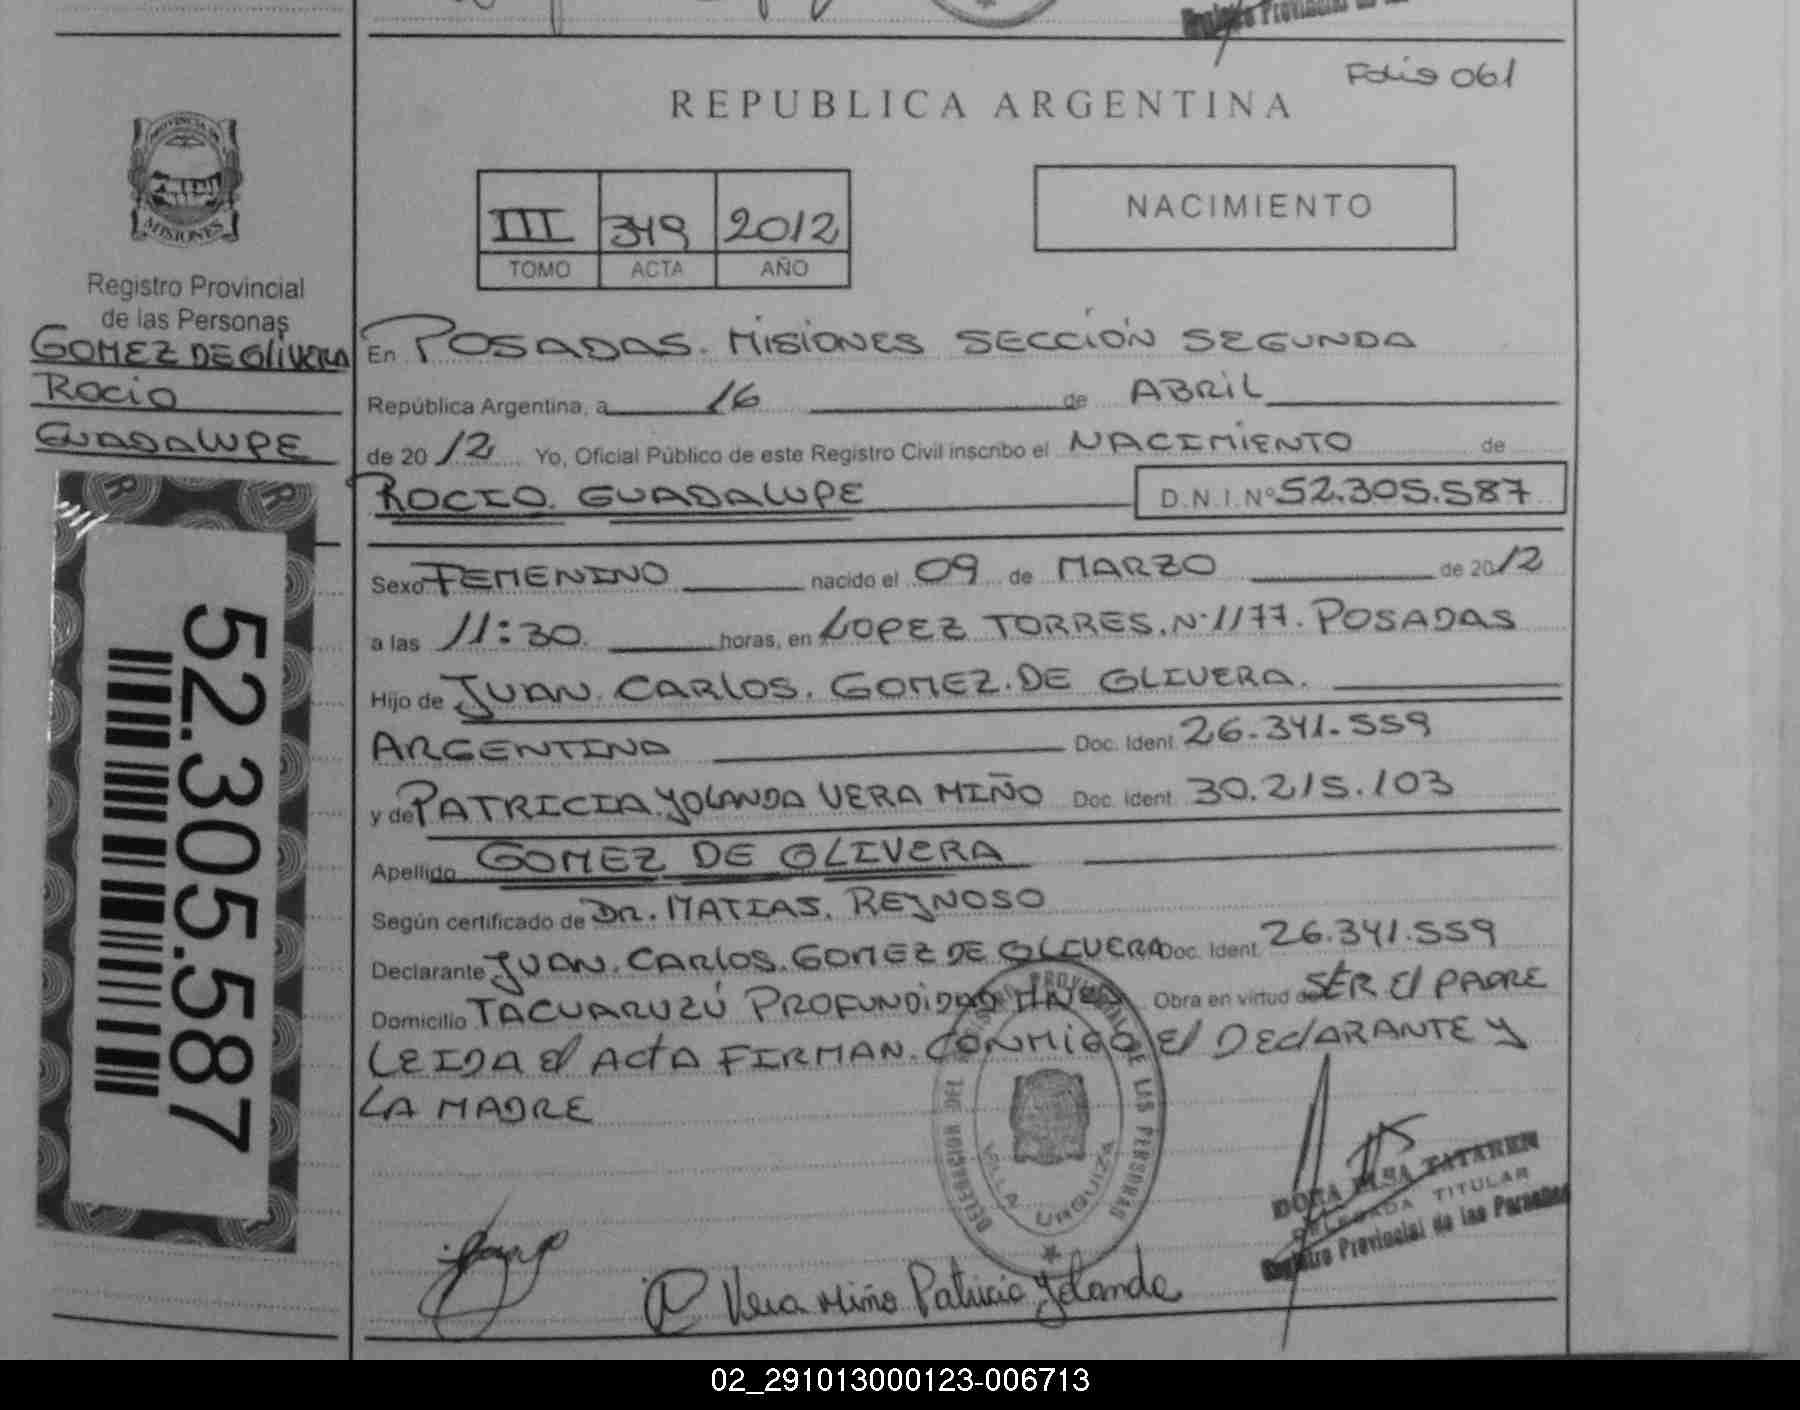 Registro Provincial de las
Folio 061
REPUBLICA ARGENTINA
PROVINCIA DE
MISIONES
III 349 2012
TOMO ACTA AÑO
NACIMIENTO
Registro Provincial
de las Personas
GOMEZ DE OLIVERA
ROCIO
GUADALUPE
52.305.587
En POSADAS. MISIONES SECCIÓN SEGUNDA
República Argentina, a 16 de ABRIL
de 2012 Yo, Oficial Público de este Registro Civil inscribo el NACIMIENTO de
ROCIO GUADALUPE D.N.I. Nº 52.305.587
Sexo FEMENINO nacido el 09 de MARZO de 2012
a las 11:30 horas, en LOPEZ TORRES. Nº 1177. POSADAS
Hijo de JUAN. CARLOS. GOMEZ. DE OLIVERA.
ARGENTINO Doc. Ident. 26.341.559
y de PATRICIA YOLANDA VERA MIÑO Doc. Ident. 30.215.103
Apellido GOMEZ DE OLIVERA
Según certificado de DR. MATIAS. REYNOSO
Declarante JUAN. CARLOS. GOMEZ DE OLIVERA Doc. Ident. 26.341.559
Domicilio TACUARUZÚ PROFUNDIDAD Obra en virtud de SER El PADRE
LEIDA el ACTA FIRMAN CONMIGO El DEClARANTE Y
LA MADRE
DELEGACION DEL REGISTRO PROVINCIAL DE LAS PERSONAS
VILLA URQUIZA
DORA ELSA TATAREN
DELEGADA TITULAR
Registro Provincial de las Personas
Vera Miño Patricia Yolanda
02_291013000123-006713